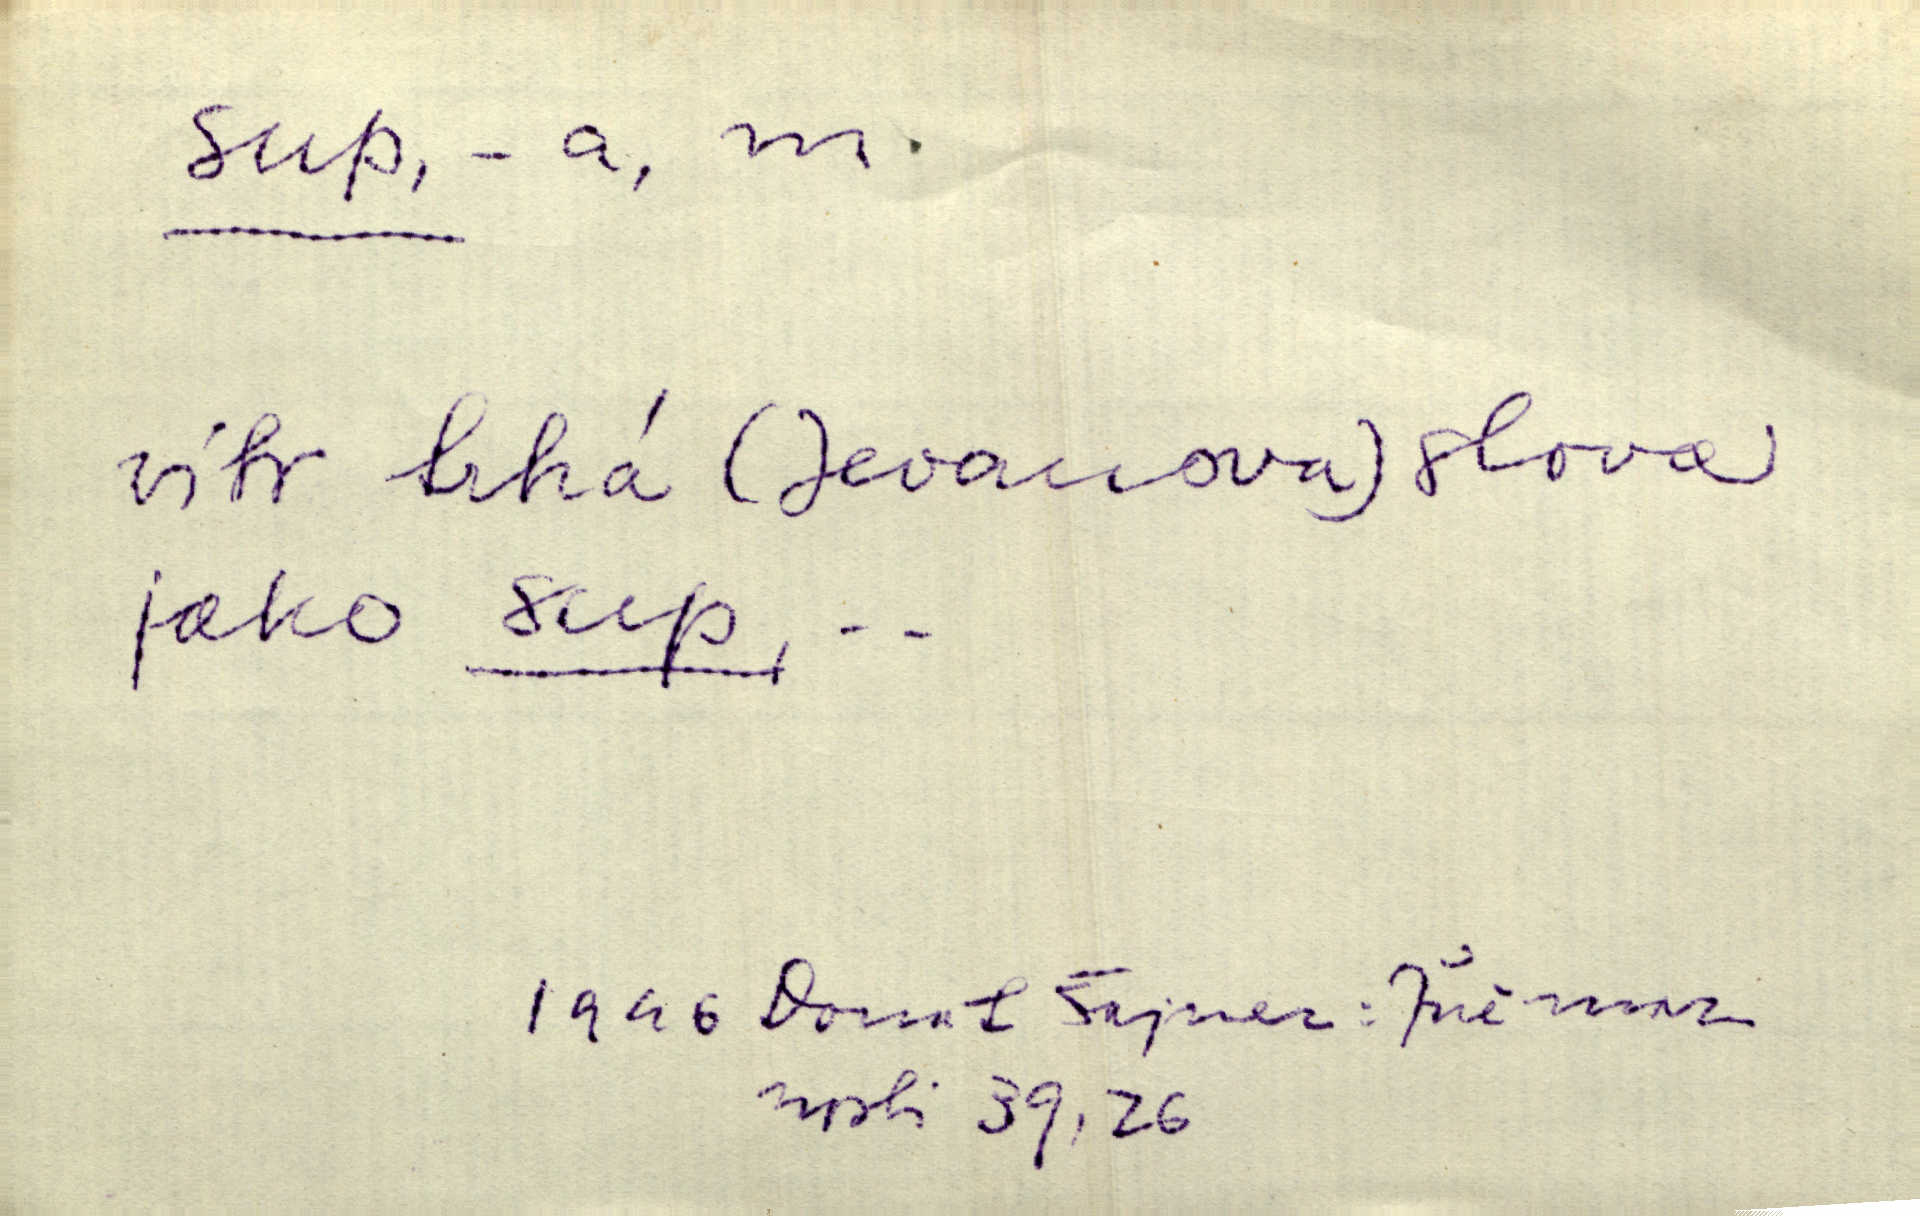 sup, - a, m.
vítr trhá (Jevanova) slova
jako sup, --
1946 Donat Šajner:
39, 26